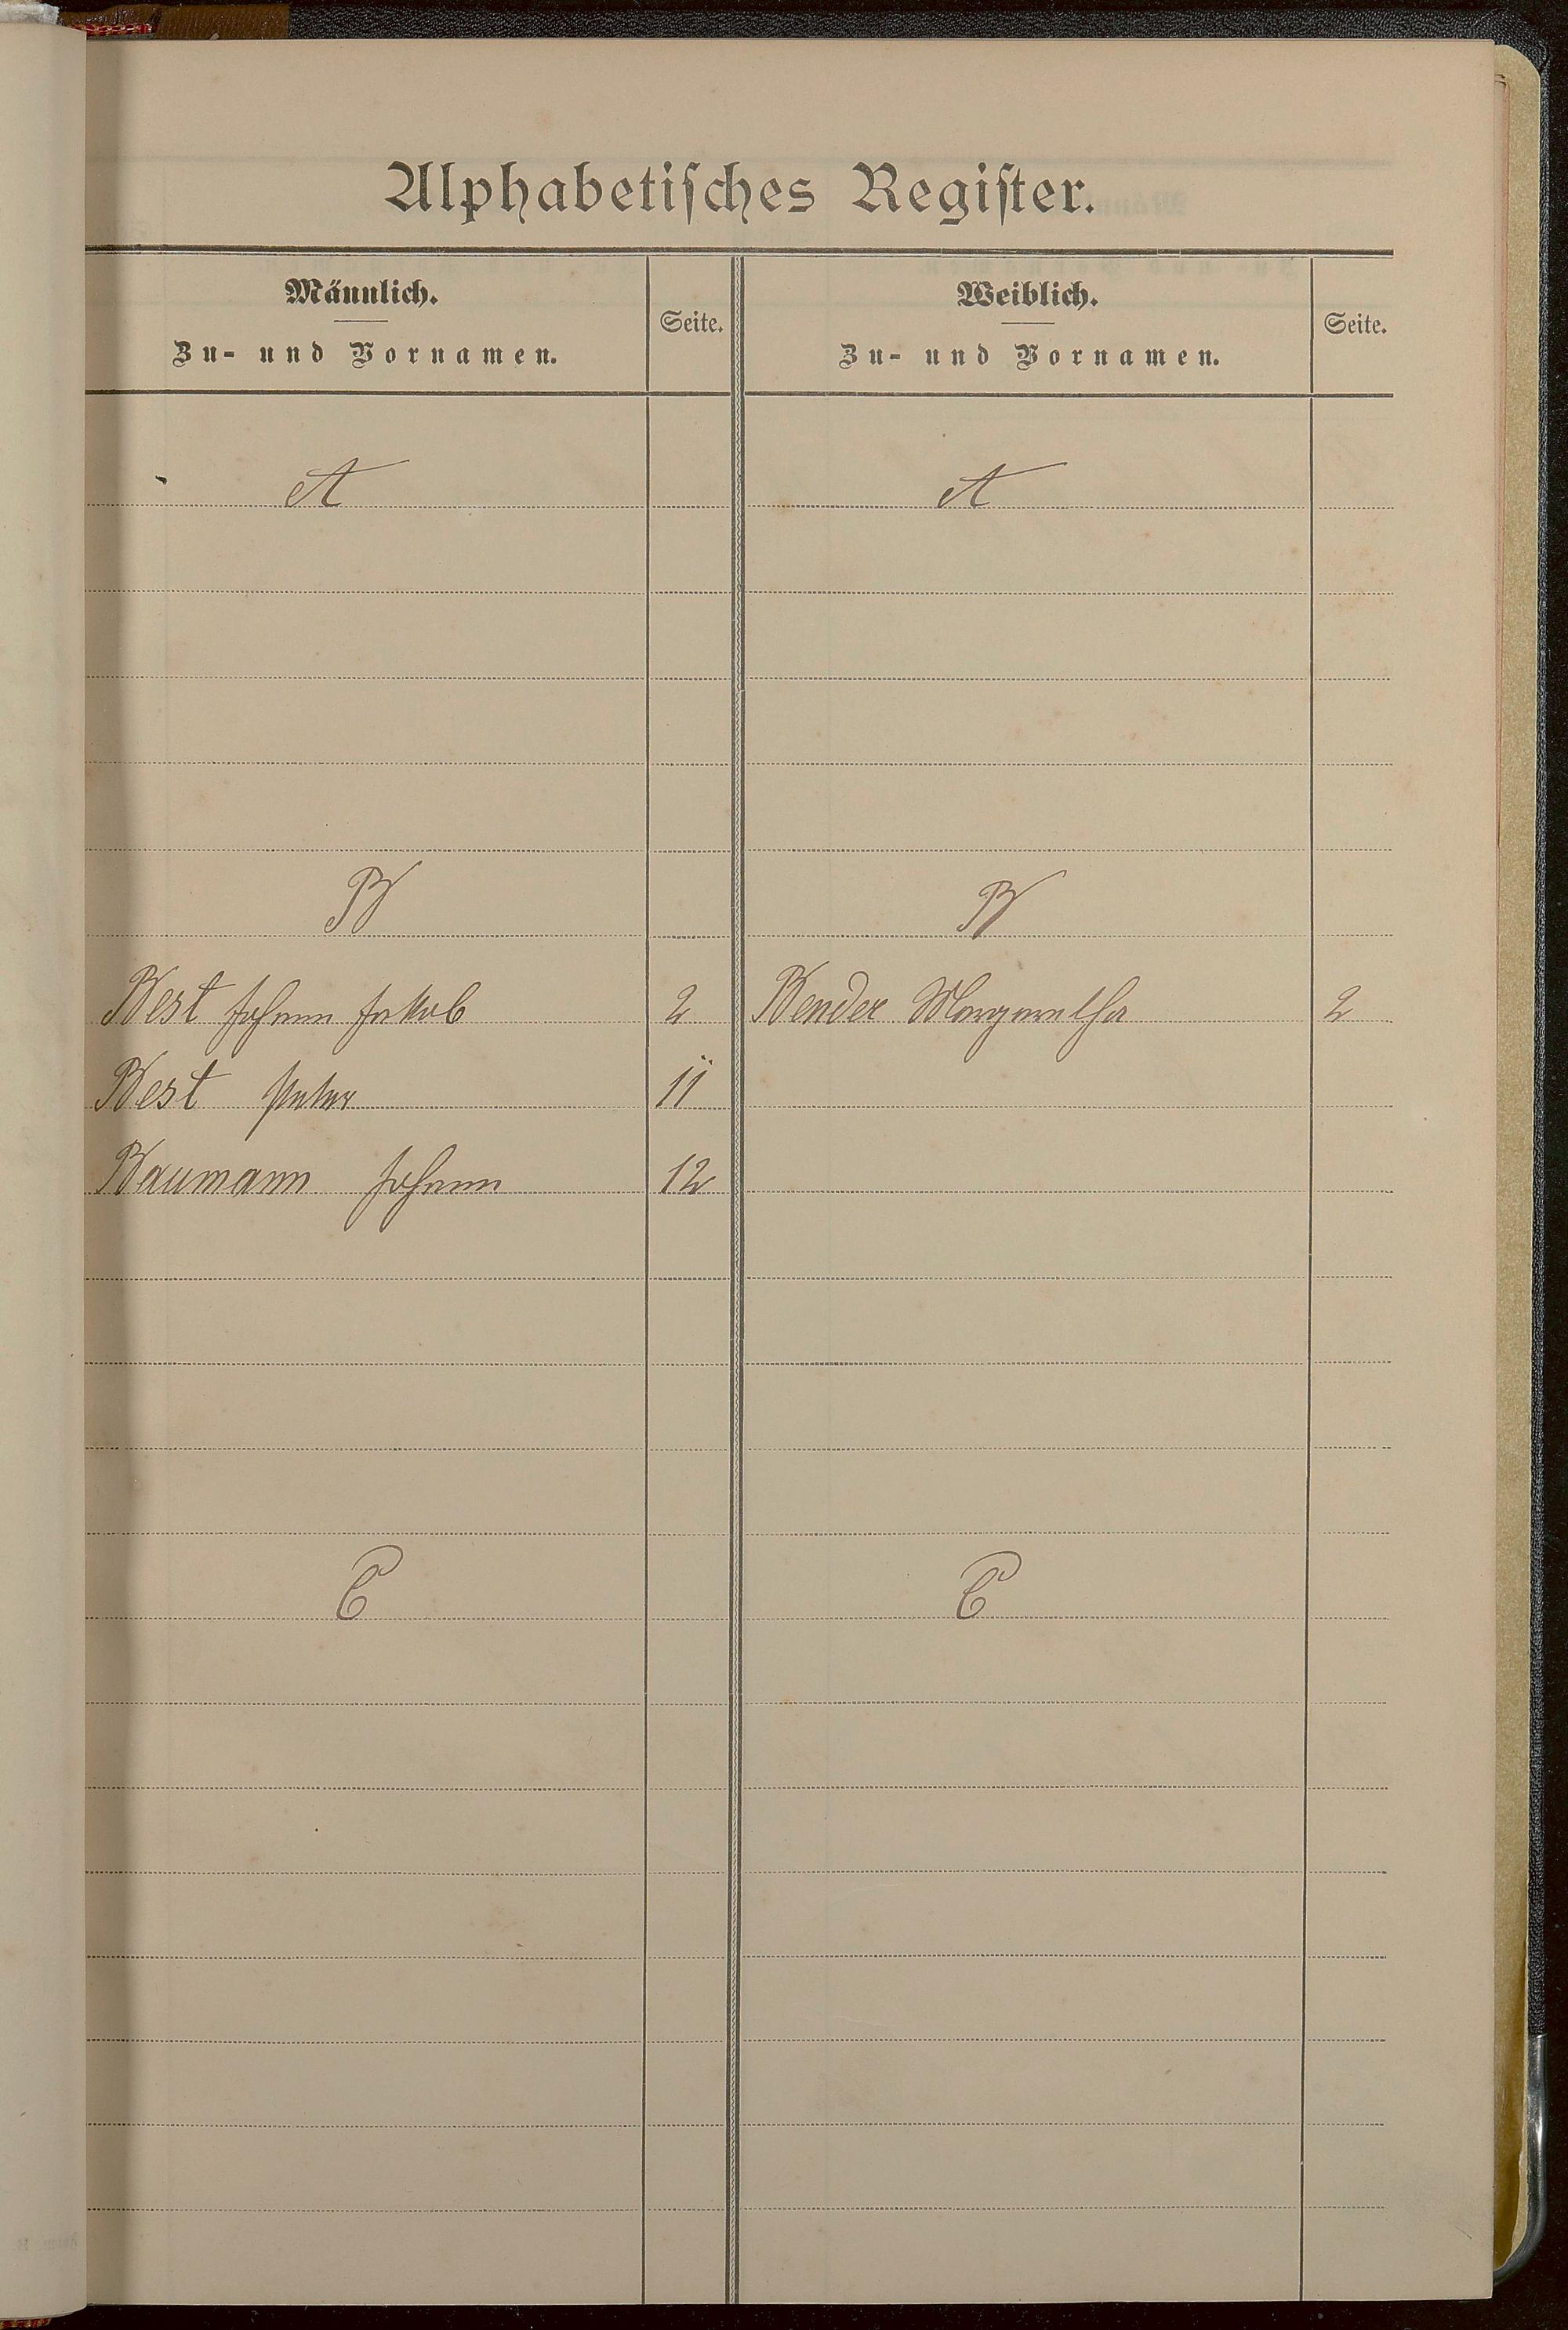 Alphabetisches Register.
Männlich.
Zu- und Vornamen.
Seite.
Weiblich.
Zu- und Vornamen.
Seite.
A
A
B
B
Best Johann Jakob 2 Bender Margaretha 2
Best Peter 11
Baumann Johann 12
C
C